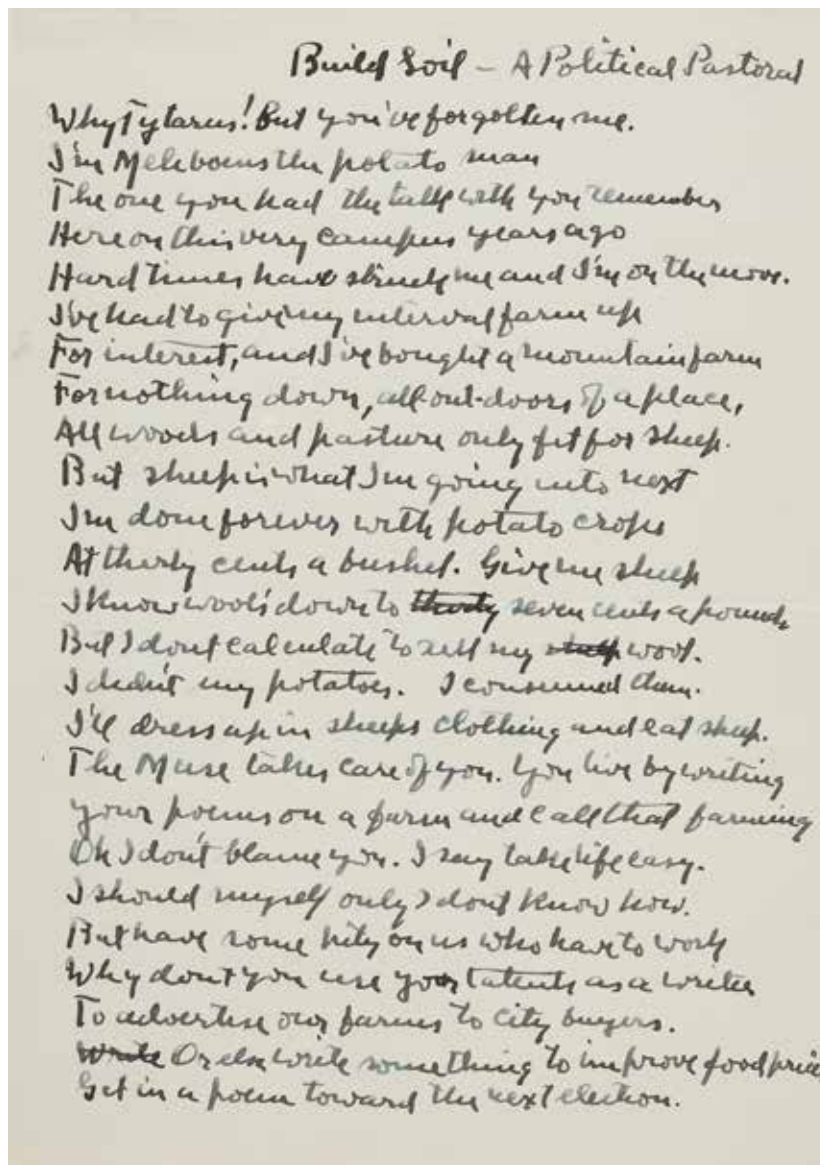 Build Soil – A Political Pastoral
Why Tytarus! But you've forgotten me.
I'm Meliboeus the potato man
The one you had the talk with you remember
Here on this very campus years ago
Hard times have struck me and I'm on the move.
I've had to give my interval farm up
For interest, and I've bought a mountain farm
For nothing down, all out-doors of a place,
All woods and pasture only fit for sheep.
But sheep is what I'm going into next
I'm done forever with potato crops
At thirty cents a bushel. Give me sheep
I know wool's down to thirty seven cents a pound
But I dont calculate to sell my wool.
I didn't my potatoes. I consumed them.
I'll dress up in sheeps clothing and eat sheep.
The Muse takes care of you. You live by writing
your poems on a farm and call that farming
Oh I don't blame you. I say take life easy.
I should myself only I dont know how.
But have some pity on us who have to work
Why dont you use your talents as a writer
To advertise our farms to city buyers.
Write Or else write something to improve food
Get in a poem toward the next election.